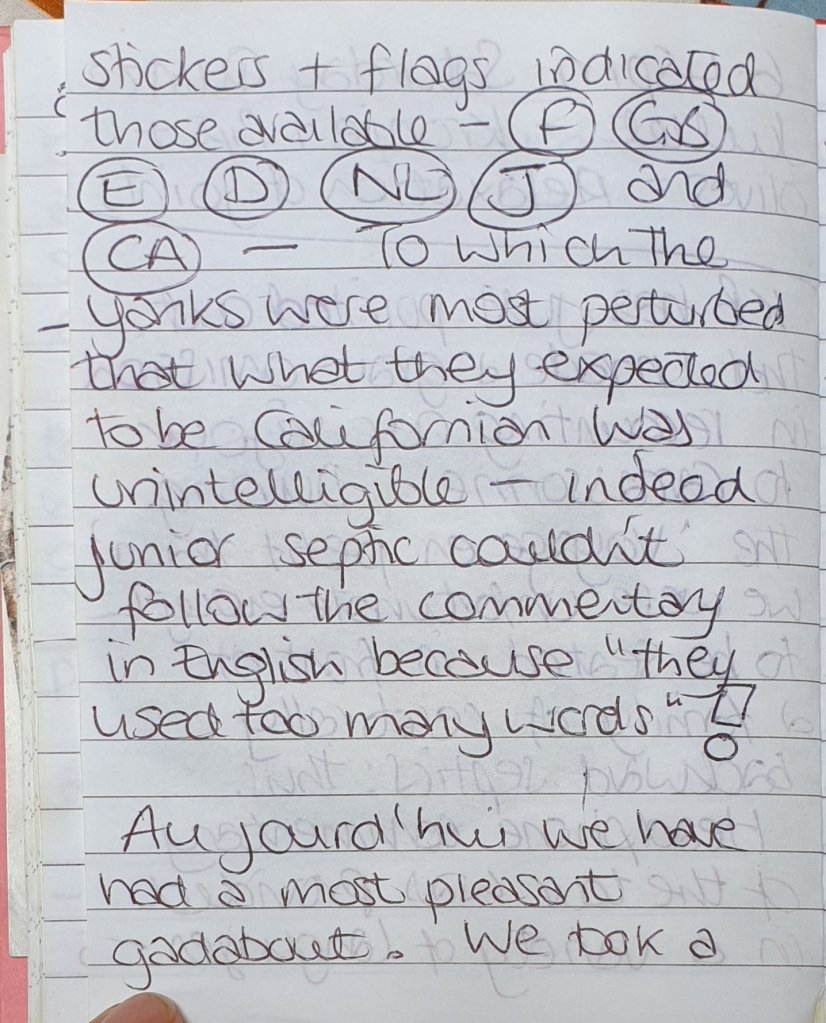 stickers + flags indicated
those available - F GB
E D NL J and
CA — To which the
- yanks were most perturbed
that what they expected
to be Californian was
unintelligible - indeed
junior septic couldn't
follow the commentary
in English because "they
used too many words"!
Aujourd'hui we have
had a most pleasant
gadabout. We took a